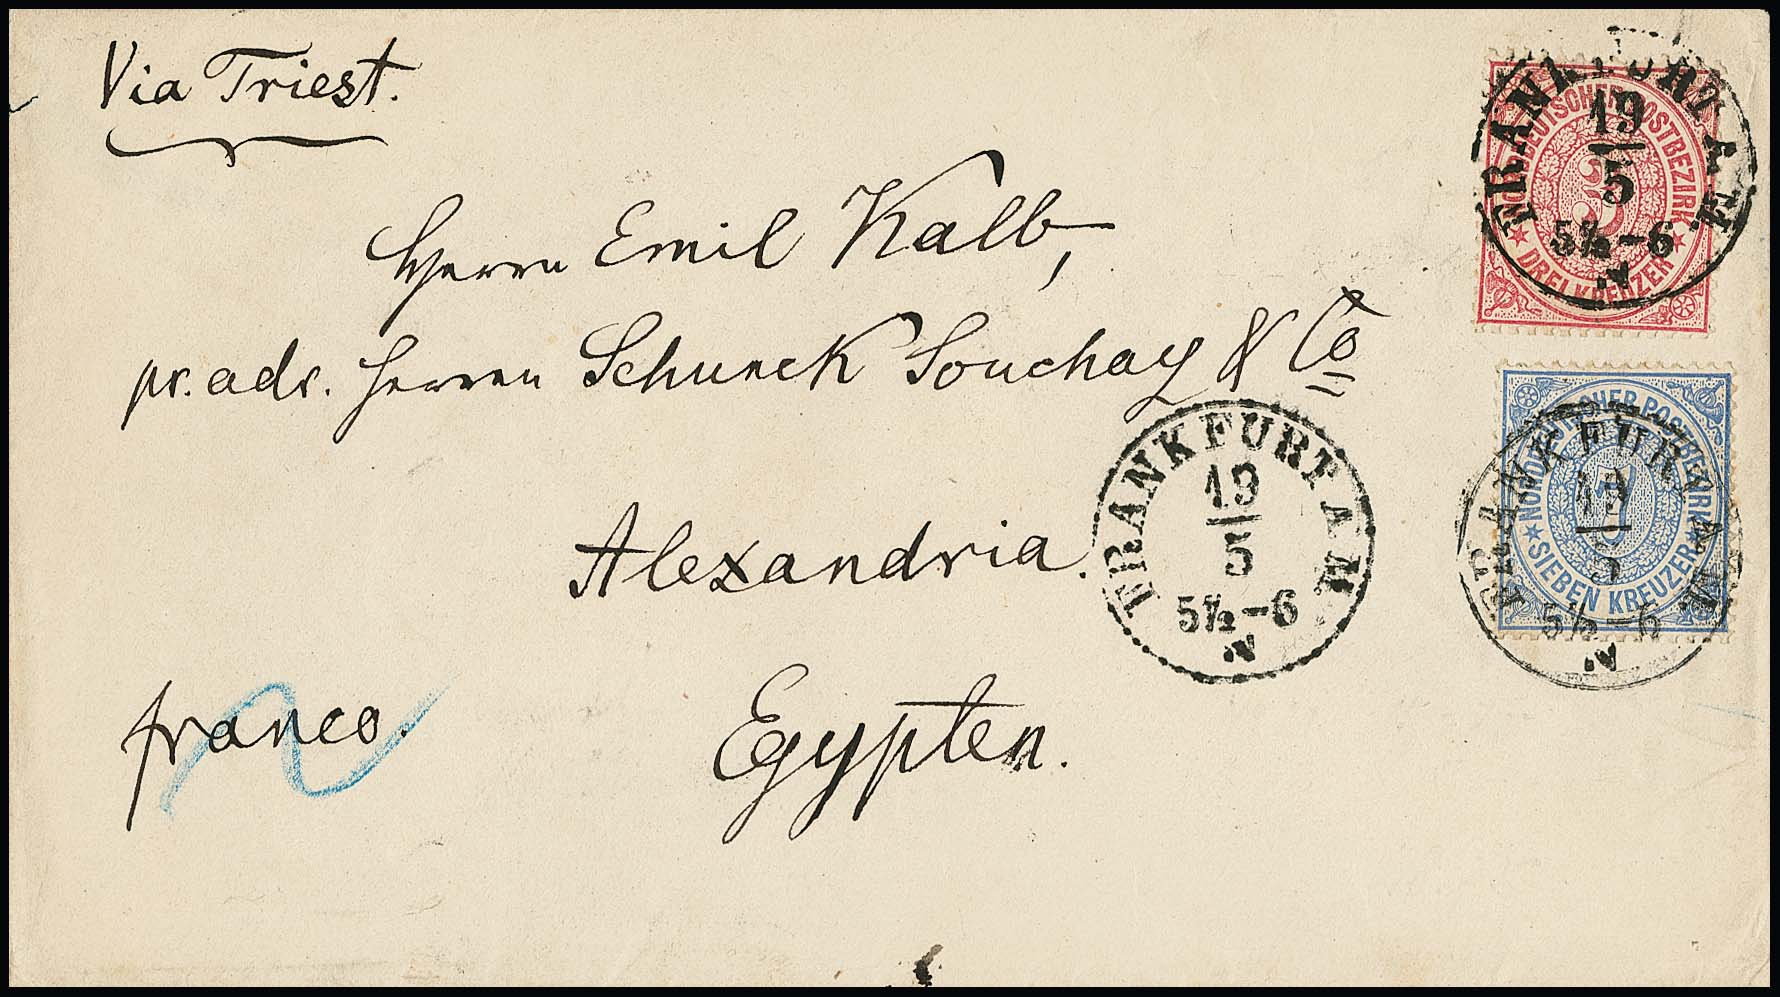 Via Triest.
Herrn Emil Kalb,
pr. adr. Herren Schunck Souchay & Co
Alexandria.
Egypten.
franco.
FRANKFURT A M.
19
5
5½-6
N
NORDDEUTSCHER POSTBEZIRK
3
DREI KREUZER
FRANKFURT A M.
19
5
5½-6
N
FRANKFURT A M.
19
5
5½-6
N
NORDDEUTSCHER POSTBEZIRK
7
SIEBEN KREUZER